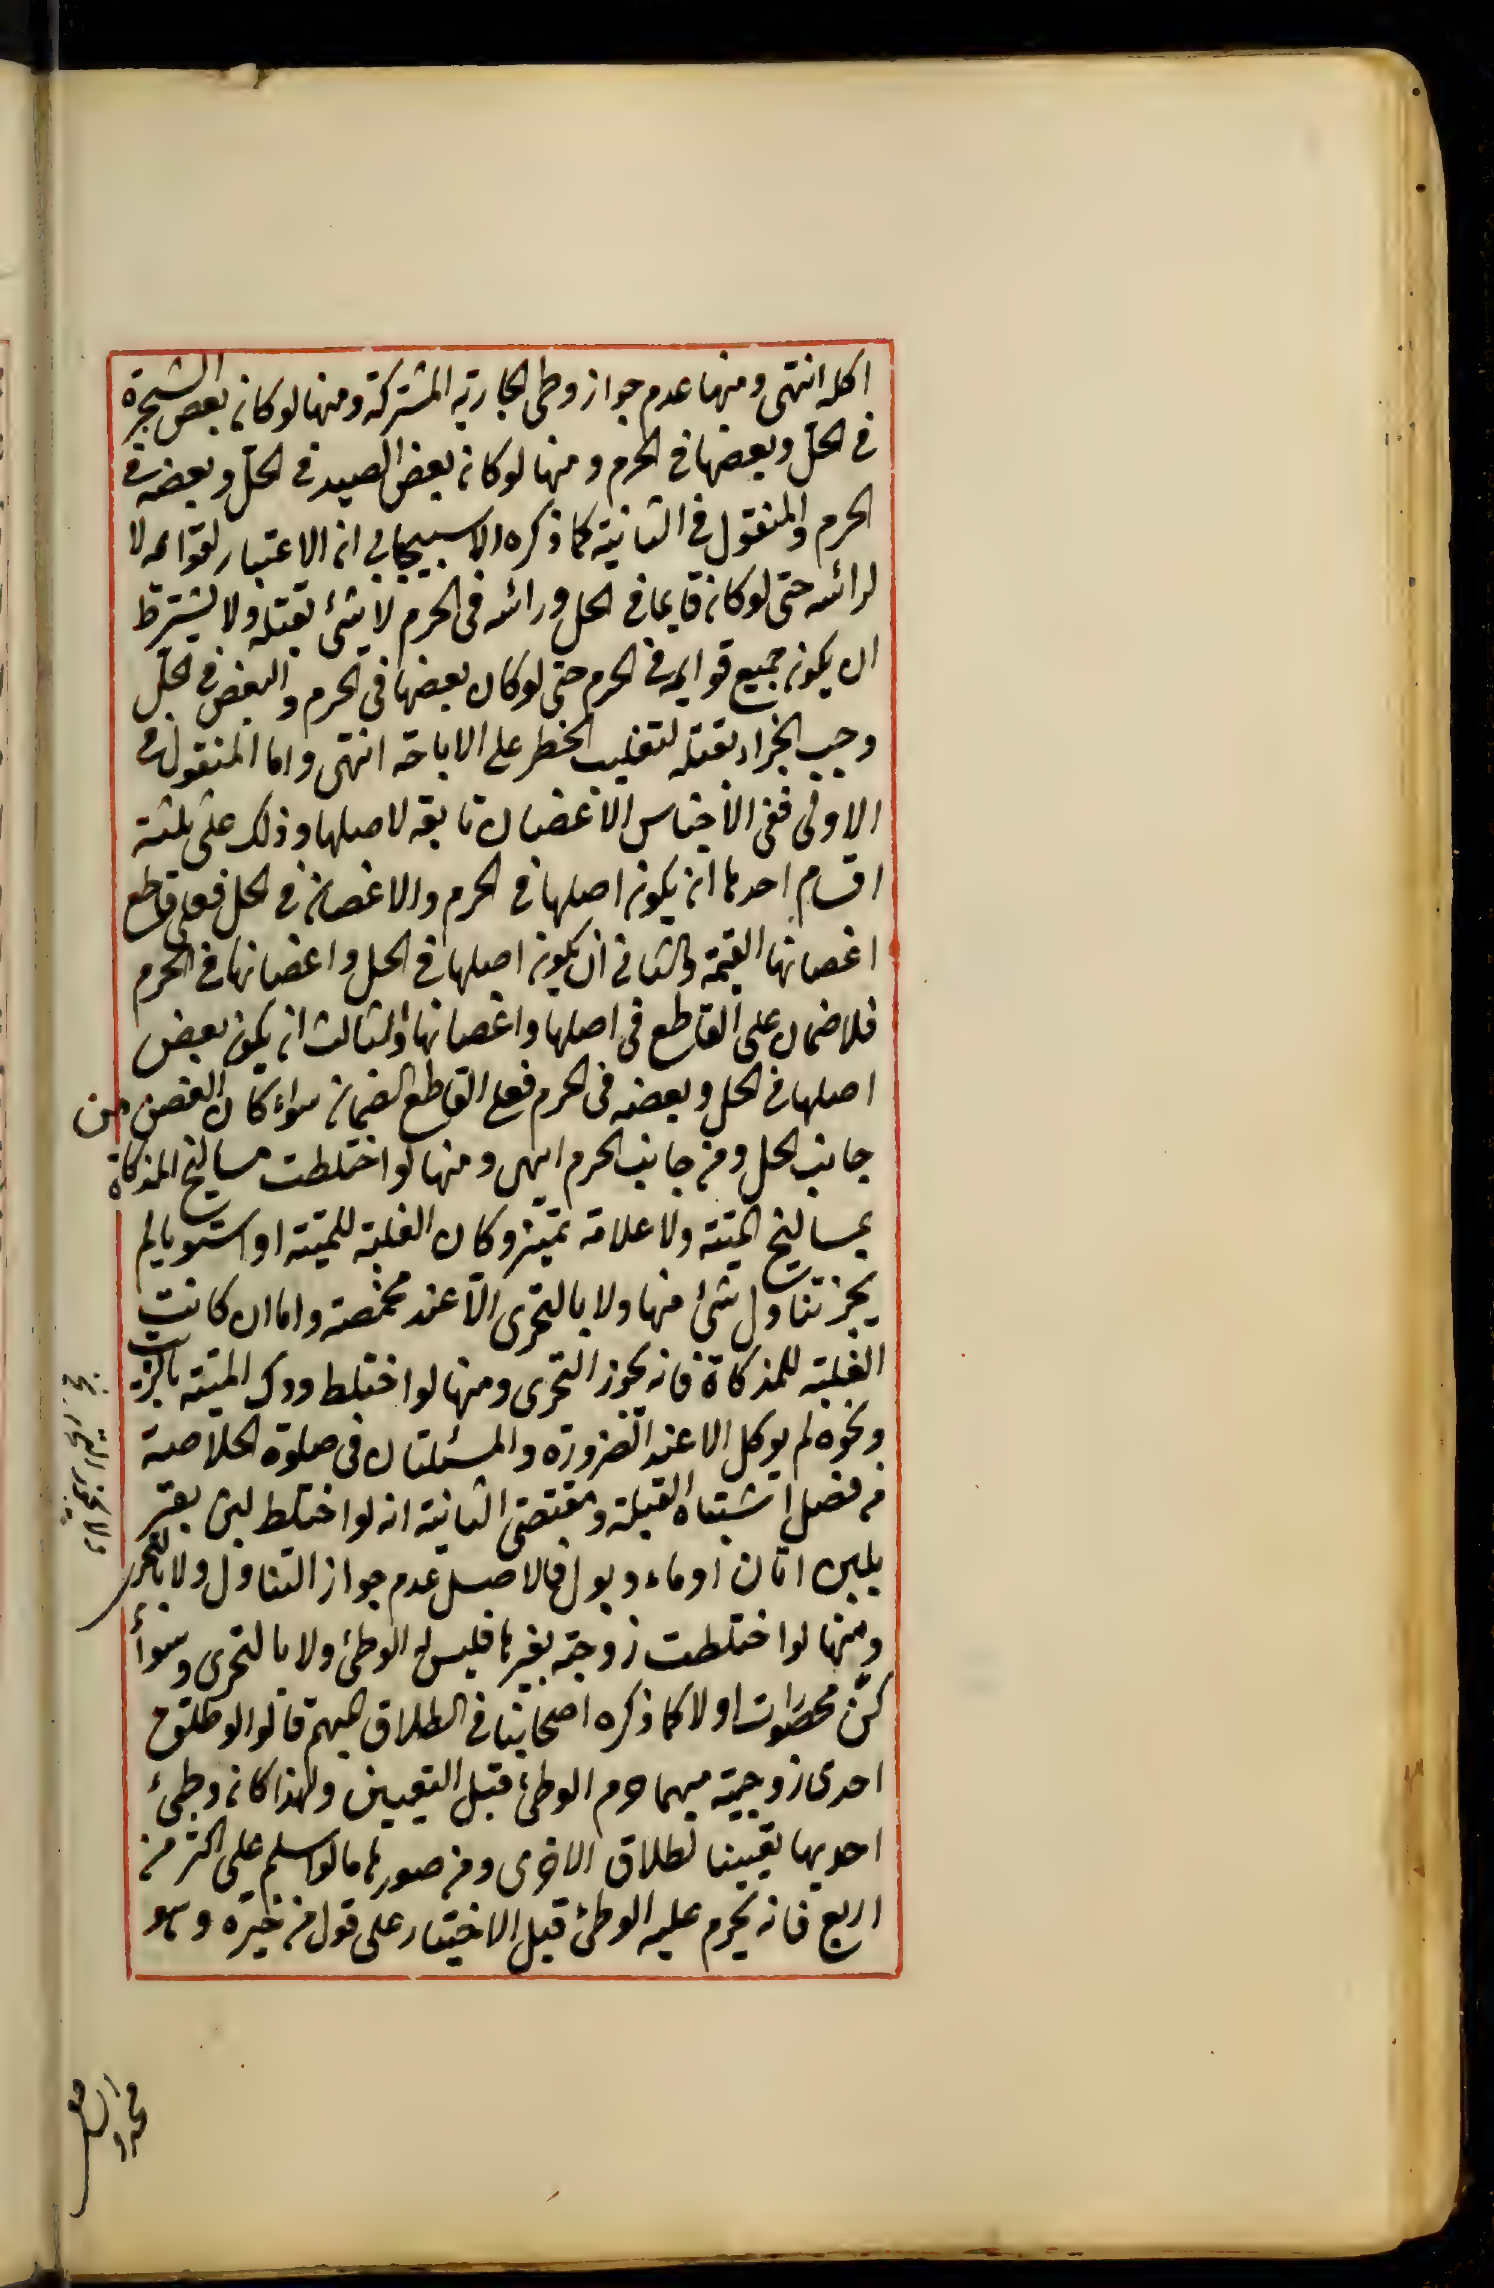 اكله انتهى ومنها عدم جواز وطى الجارية المشتركة ومنها لوكان بعض الشجرة
فى الحلّ وبعضها فى الحرم ومنها لوكان بعض الصيد فى الحلّ وبعضه فى
الحرم والمنقول فى الثانية كما ذكره الاسبيجابى ان الاعتبار لقوائمه لا
لرائسه حتى لوكان قايما فى الحل ورائسه فى الحرم لا شئ بقتله ولا يشترط
ان يكون جميع قوايمه فى الحرم حتى لوكان بعضها فى الحرم والبعض فى الحلّ
وجب الجزاء بقتله لتغليب الخطر على الاباحة انتهى واما المنقول فى
الاولى ففى الأجناس الاغصان تابعة لاصلها وذلك على ثلثة
اقسام احدها ان يكون اصلها فى الحرم والاغصان فى الحل فعلى قاطع
اغصانها القيمة والثانى ان يكون اصلها فى الحل واغصانها فى الحرم
فلاضمان على القاطع فى اصلها واغصانها والثالث ان يكون بعض
اصلها فى الحل وبعضه فى الحرم فعلى القاطع الضمان سواء كان الغصن من
جانب الحل ومن جانب الحرم انتهى ومنها لو اختلطت مساليخ المذكاة
بمساليخ الميتة ولا علامة تميّز وكان الغلبة للميتة او استويا لم
يجز تناول شئ منها ولا بالتحرى الّا عند مخمصة واما ان كانت
الغلبة للمذكاة فانه يجوز التحرى ومنها لو اختلط ودك الميتة بالزيت
ونحوه لم يوكل الا عند الضرورة والمسئلتان فى صلوة الخلاصة
من فصل اشتباه القبلة ومقتضى الثانية انه لو اختلط لبن بقر
بلبن اتان او ماء وبول فالاصل عدم جواز التناول ولا بالتحرى
ومنها لو اختلطت زوجته بغيرها فليس له الوطئ ولا بالتحرى وسواء
كنّ محصوات اولا كما ذكره اصحابنا فى الطلاق المبهم قالوا لو طلق
احدى زوجيته مبهما حرم الوطئ قبل التعيين ولهذا كان وطئ
احديها تعيينا لطلاق الاخرى ومن صورها ما لو اسلم على اكثر من
اربع فانه يحرم عليه الوطئ قبل الاختيار على قول من خيّره وهو